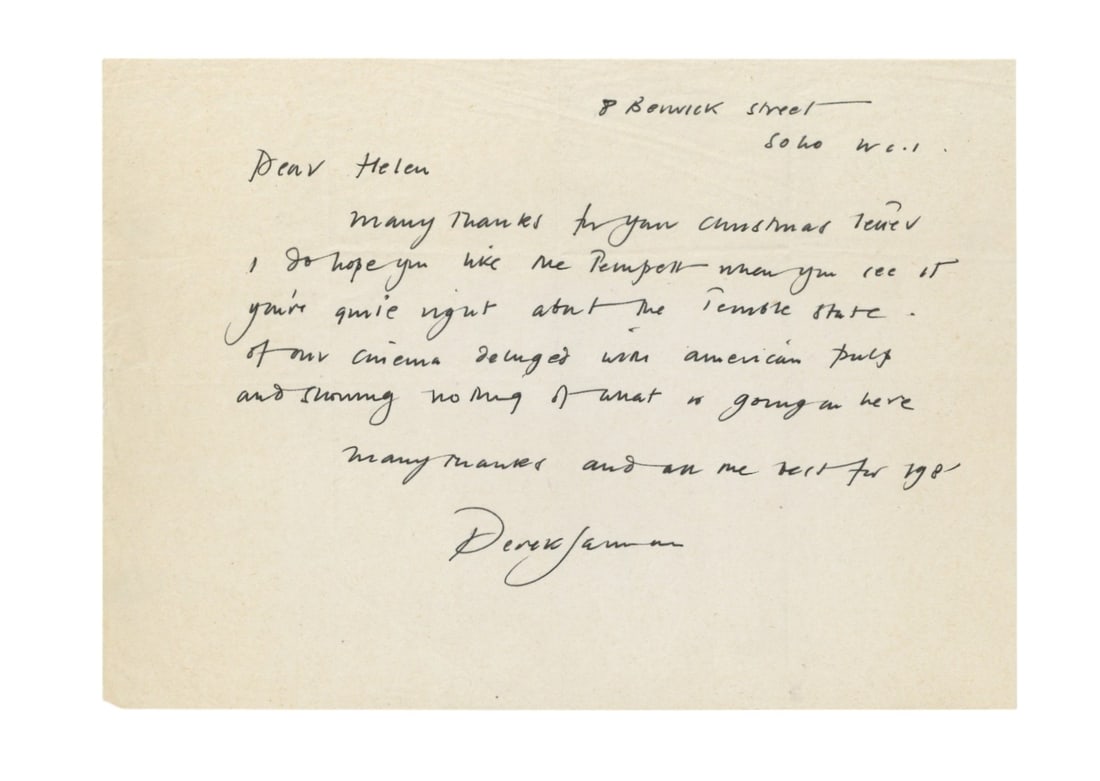 8 Berwick Street
Soho WC.1.
Dear Helen
Many thanks for your Christmas letter
I do hope you like the Tempest when you see it
you're quite right about the terrible state
of our cinema deluged with american pulp
and showing nothing of what is going on here
Many thanks and all the best for 198
Derek Jarman